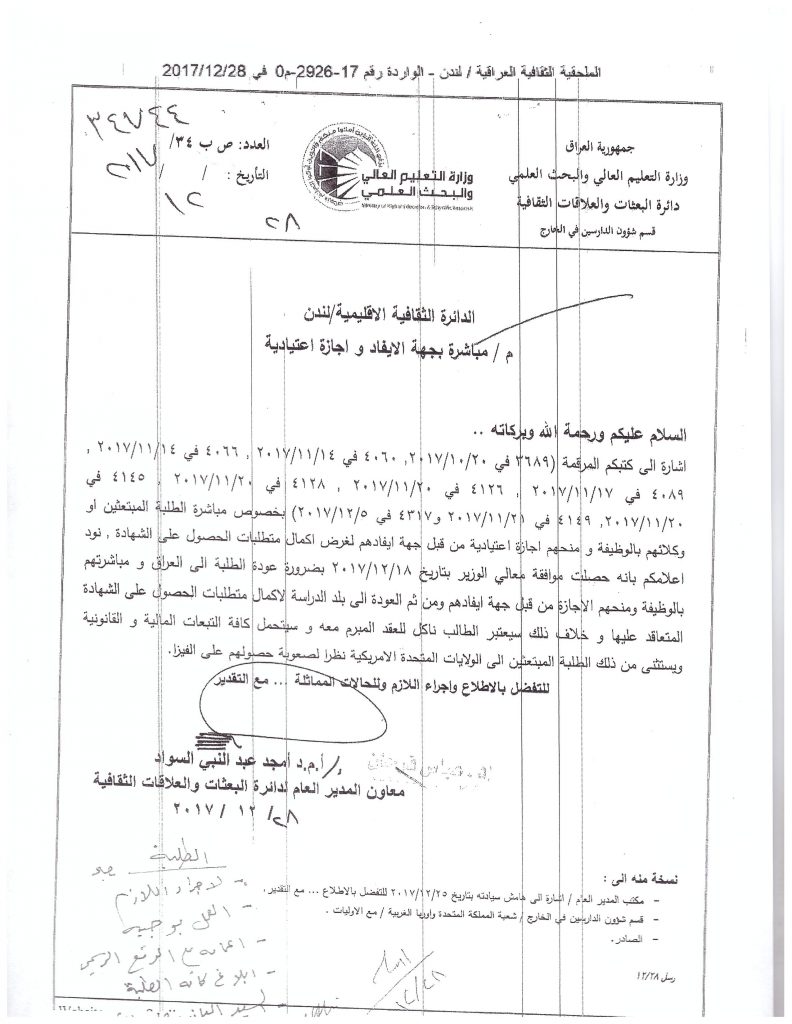 الملحقية الثقافية العراقية / لندن - الواردة رقم 17-2926-م0 في 2017/12/28
جمهورية العراق
وزارة التعليم العالي والبحث العلمي
دائرة البعثات والعلاقات الثقافية
قسم شؤون الدارسين في الخارج
وزارة التعليم العالي
والبحث العلمي
Ministry of Higher Education & Scientific Research
العدد: ص ب ٣٤/ ٣٤٧٤٤
التأريخ : ٢٨ / ١٢ / ٢٠١٧
الدائرة الثقافية الاقليمية/لندن
م / مباشرة بجهة الايفاد و اجازة اعتيادية
السلام عليكم ورحمة الله وبركاته ..
اشارة الى كتبكم المرقمة (٣٦٨٩ في ٢٠١٧/١٠/٢٠, ٤٠٦٠ في ٢٠١٧/١١/١٤ , ٤٠٦٦ في ٢٠١٧/١١/١٤ ,
٤٠٨٩ في ٢٠١٧/١١/١٧ , ٤١٢٦ في ٢٠١٧/١١/٢٠ , ٤١٢٨ في ٢٠١٧/١١/٢٠ , ٤١٤٥ في
٢٠١٧/١١/٢٠, ٤١٤٩ في ٢٠١٧/١١/٢١ و٤٣١٧ في ٢٠١٧/١٢/٥) بخصوص مباشرة الطلبة المبتعثين او
وكلائهم بالوظيفة و منحهم اجازة اعتيادية من قبل جهة ايفادهم لغرض اكمال متطلبات الحصول على الشهادة , نود
اعلامكم بانه حصلت موافقة معالي الوزير بتاريخ ٢٠١٧/١٢/١٨ بضرورة عودة الطلبة الى العراق و مباشرتهم
بالوظيفة ومنحهم الاجازة من قبل جهة ايفادهم ومن ثم العودة الى بلد الدراسة لاكمال متطلبات الحصول على الشهادة
المتعاقد عليها و خلاف ذلك سيعتبر الطالب ناكل للعقد المبرم معه و سيتحمل كافة التبعات المالية و القانونية
ويستثنى من ذلك الطلبة المبتعثين الى الولايات المتحدة الامريكية نظرا لصعوبة حصولهم على الفيزا.
للتفضل بالاطلاع واجراء اللازم وللحالات المماثلة ... مع التقدير
أ.م.د أمجد عبد النبي السواد
معاون المدير العام لدائرة البعثات والعلاقات الثقافية
٢٨/ ١٢ / ٢٠١٧
نسخة منه الى :
- مكتب المدير العام / اشارة الى هامش سيادته بتاريخ ٢٠١٧/١٢/٢٥ للتفضل بالاطلاع ... مع التقدير.
- قسم شؤون الدارسين في الخارج / شعبة المملكة المتحدة واوربا الغربية / مع الاوليات .
- الصادر.
رسل ١٢/٢٨
الطلبة
- لاجراء اللازم
- ابلاغ كافة الطلبة